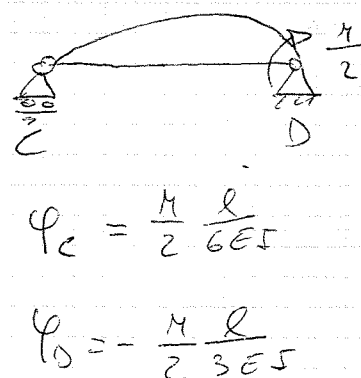 M/2
C D
φ_C = M/2 l/6EI
φ_D = - M/2 l/3EI